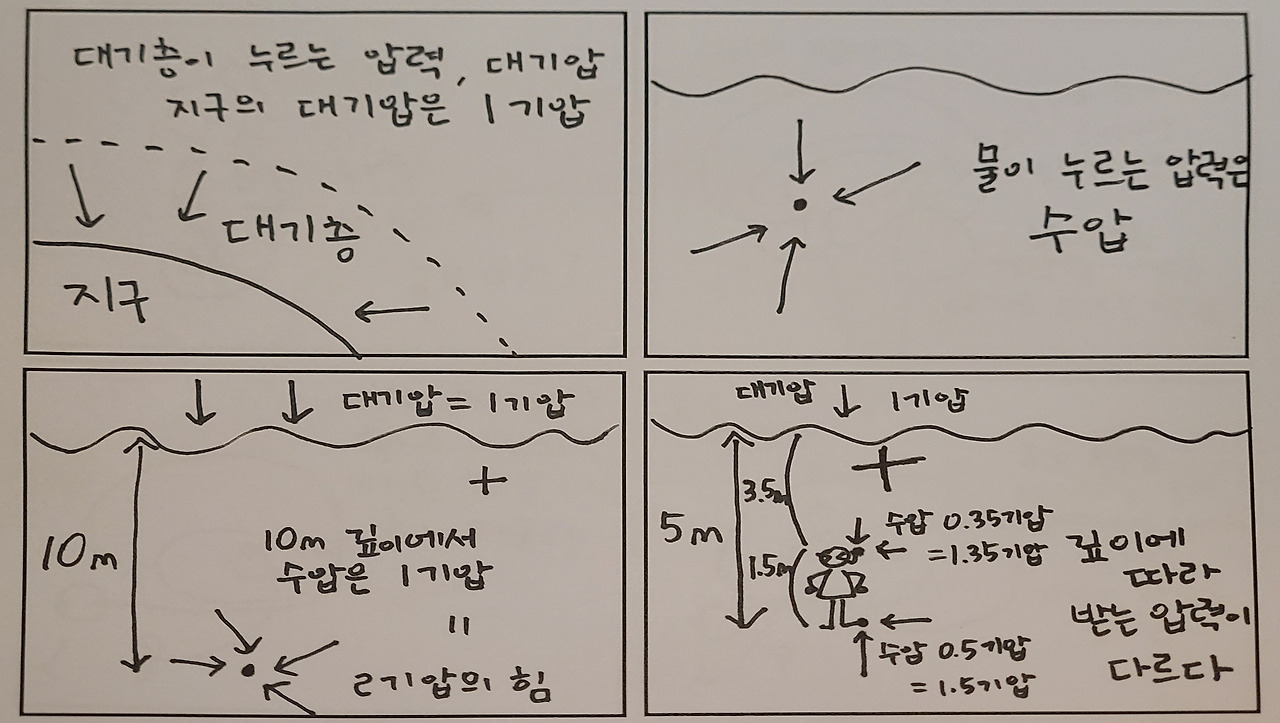 대기층이 누르는 압력, 대기압
지구의 대기압은 1기압
대기층
지구
물이 누르는 압력은
수압
대기압 = 1기압
+
10m
10m 깊이에서
수압은 1기압
=
2기압의 힘
대기압 1기압
+
5m
3.5m
1.5m
수압 0.35기압
=1.35기압
깊이에
따라
받는 압력이
다르다
수압 0.5기압
=1.5기압